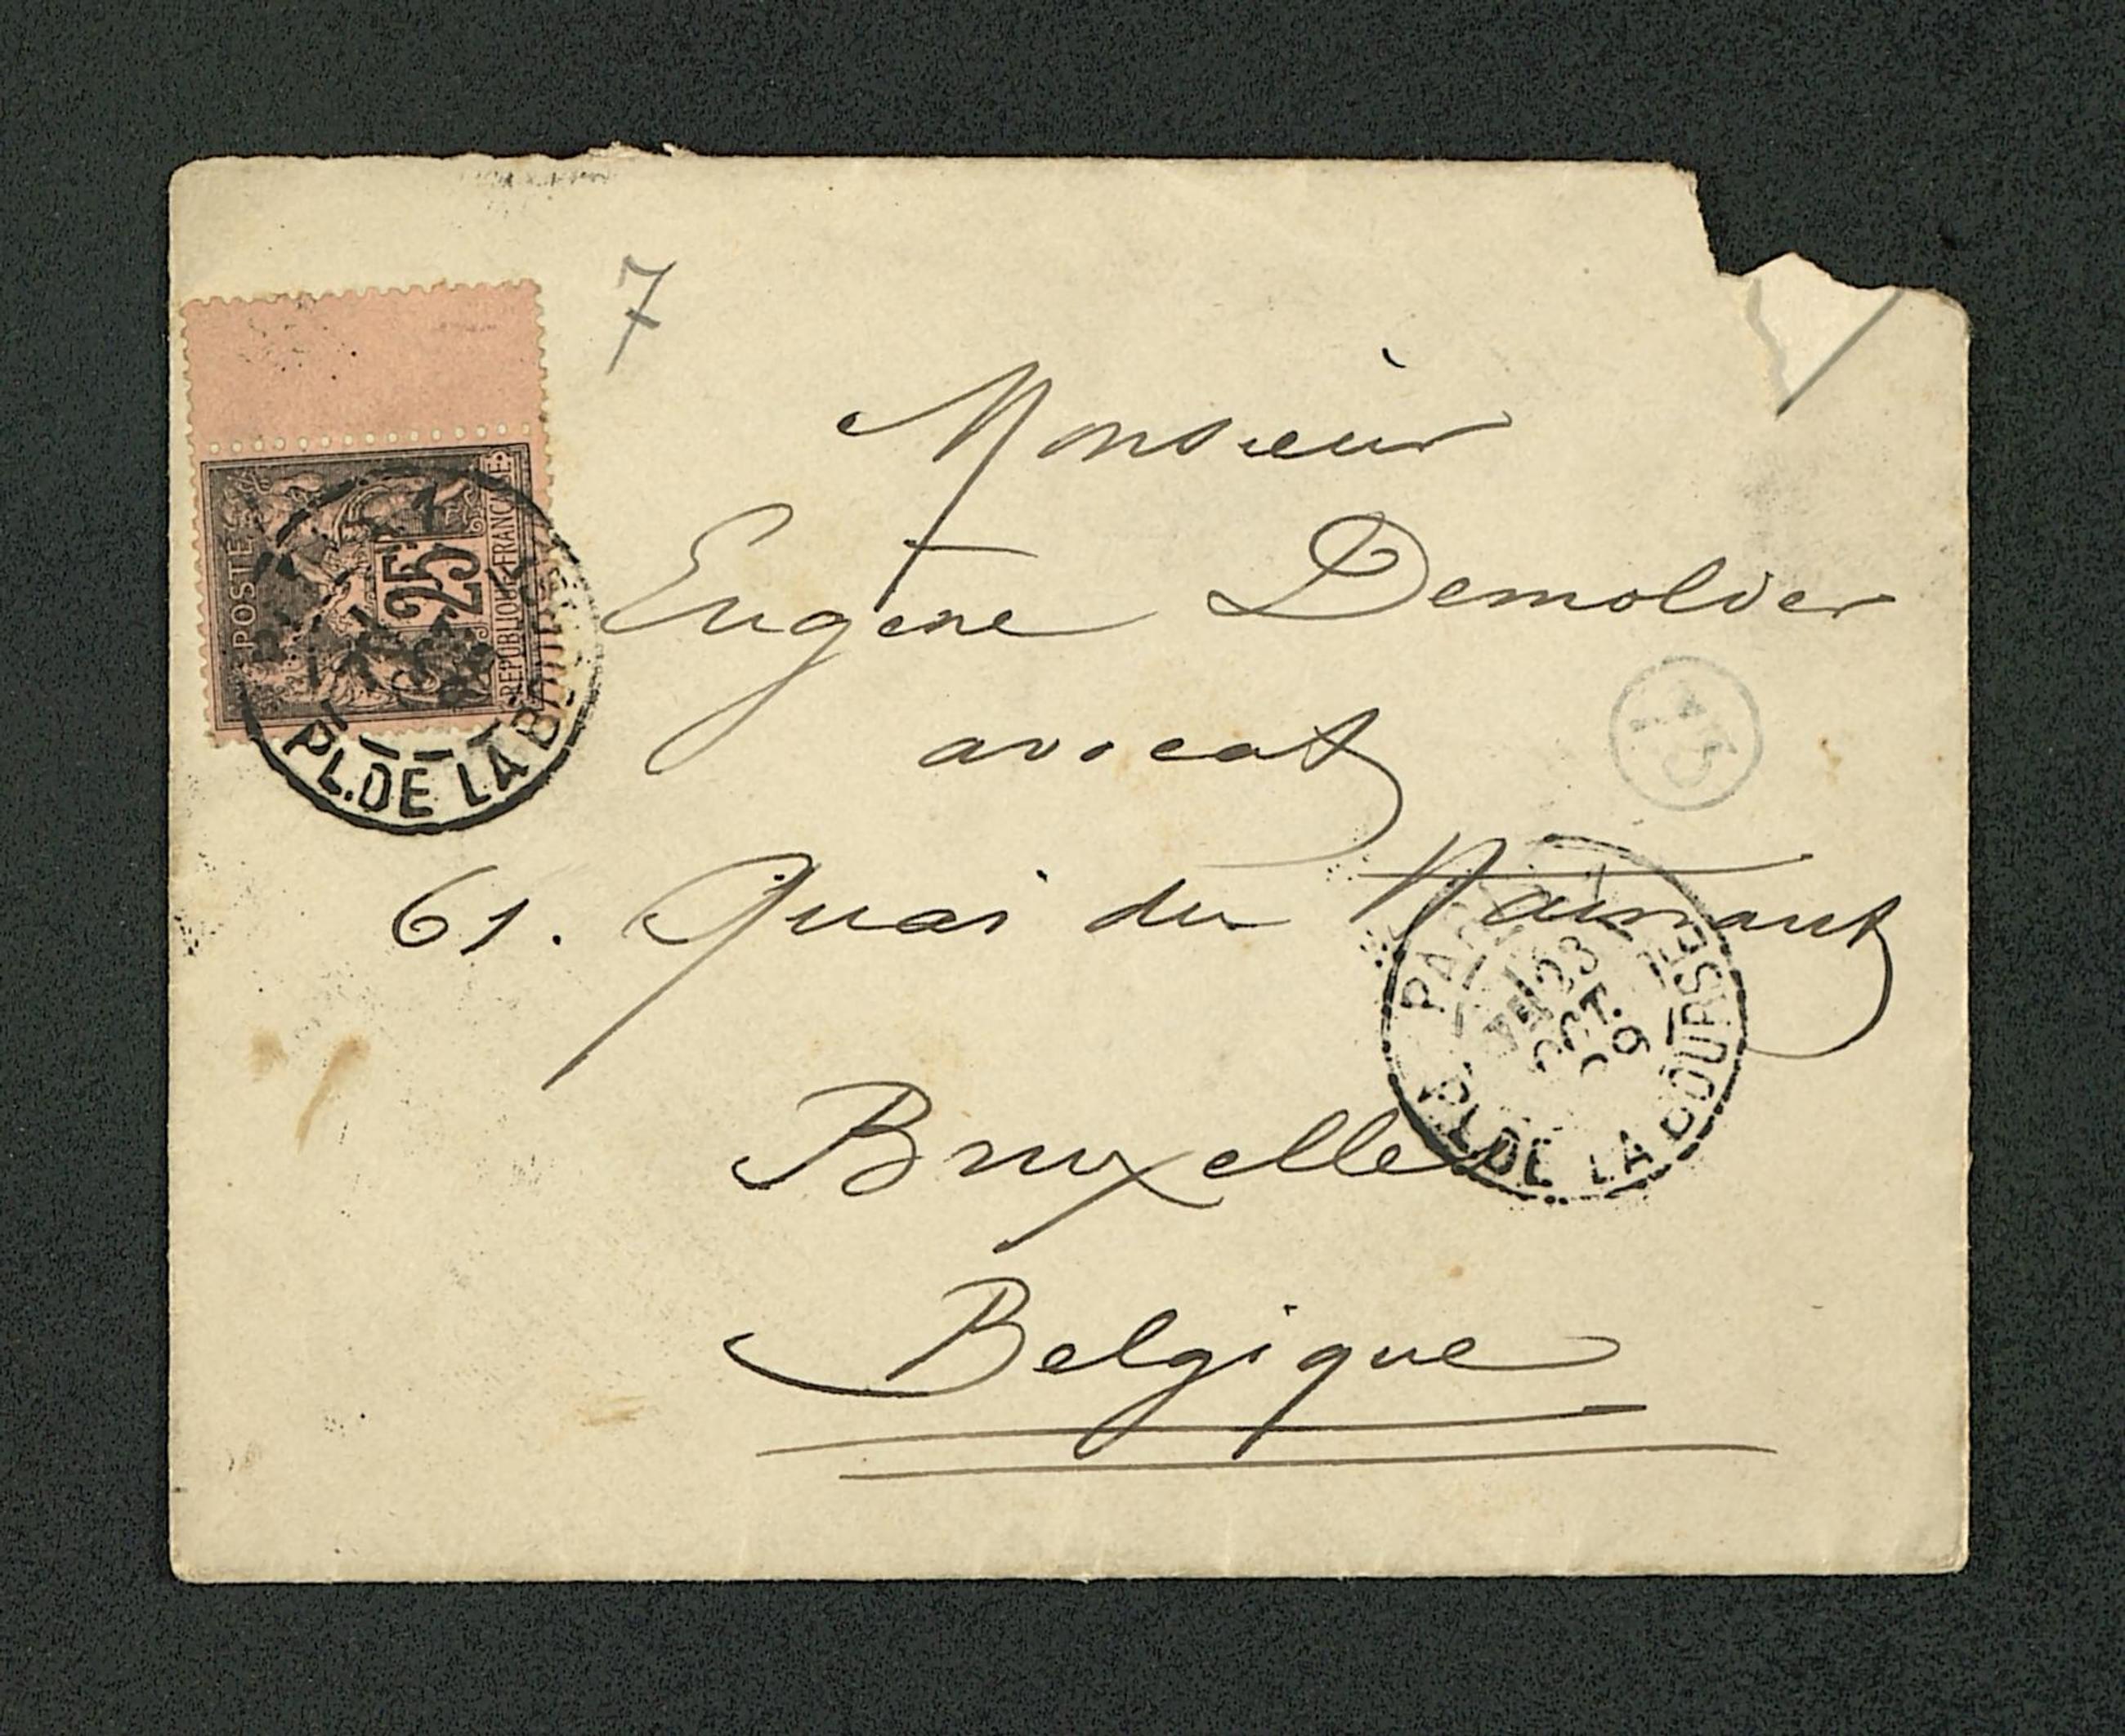 7
Monsieur
Eugène Demolder
avocat
61. Quai du Hainaut
Bruxelles
Belgique
POSTES
25
REPUBLIQUE FRANCAISE
PL. DE LA B
PARIS
23
OCT.
9
PL. DE LA BOURSE